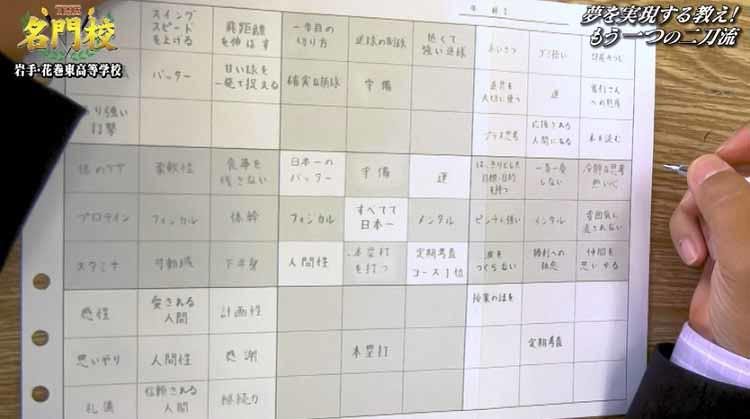 THE
名門校
岩手・花巻東高等学校
夢を実現する教え!
もう一つの二刀流
スイング
スピード
を上げる
飛距離
を伸ばす
一歩目の
切り方
低くて
強い送球
あいさつ
ゴミ拾い
バッター
甘い球を
一発で捉える
確実な捕球
守備
道具を
大切に使う
運
審判さん
への態度
打撃
プラス思考
応援される
人間になる
本を読む
体のケア
柔軟性
食事を
残さない
日本一の
バッター
守備
運
はっきりとした
目標・目的
を持つ
一喜一憂
しない
冷静な思考
熱い心
プロテイン
フィジカル
体幹
フィジカル
すべてで
日本一
メンタル
ピンチに強い
メンタル
雰囲気に
流されない
スタミナ
可動域
下半身
人間性
本塁打
を打つ
定期考査
コース1位
波を
つくらない
勝利への
執念
仲間を
思いやる
感性
愛される
人間
計画性
授業の話を
思いやり
人間性
感謝
本塁打
定期考査
礼儀
信頼される
人間
継続力